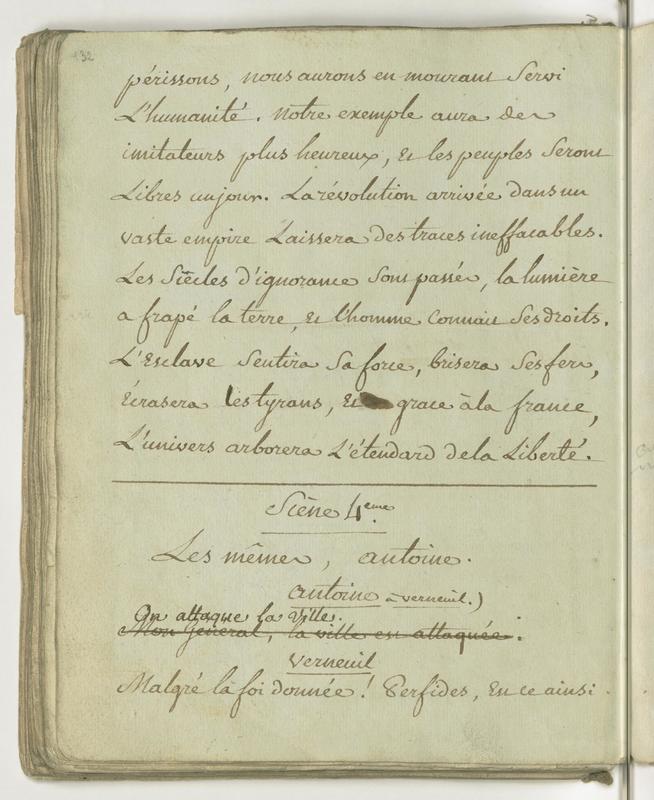 132
périssons, nous aurons en mourant Servi
L'humanité. Notre exemple aura des
imitateurs plus heureux, Et les peuples Seront
Libres un jour. La révolution arrivée dans un
vaste empire Laissera des traces ineffacables.
Les Siècles d'ignorance Sont passés, la lumière
a frapé la terre, Et l'homme Connait Ses droits.
L'Esclave Sentira Sa force, brisera Ses fers,
Écrasera les tyrans, Et grace à la france,
L'univers arborera L'étendard de la Liberté.
Scène 4eme.
Les mêmes, antoine.
antoine à verneuil.)
On attaque la Ville.
Mon Général, la ville est attaquée.
verneuil
Malgré la foi donnée! Perfides, Est ce ainsi